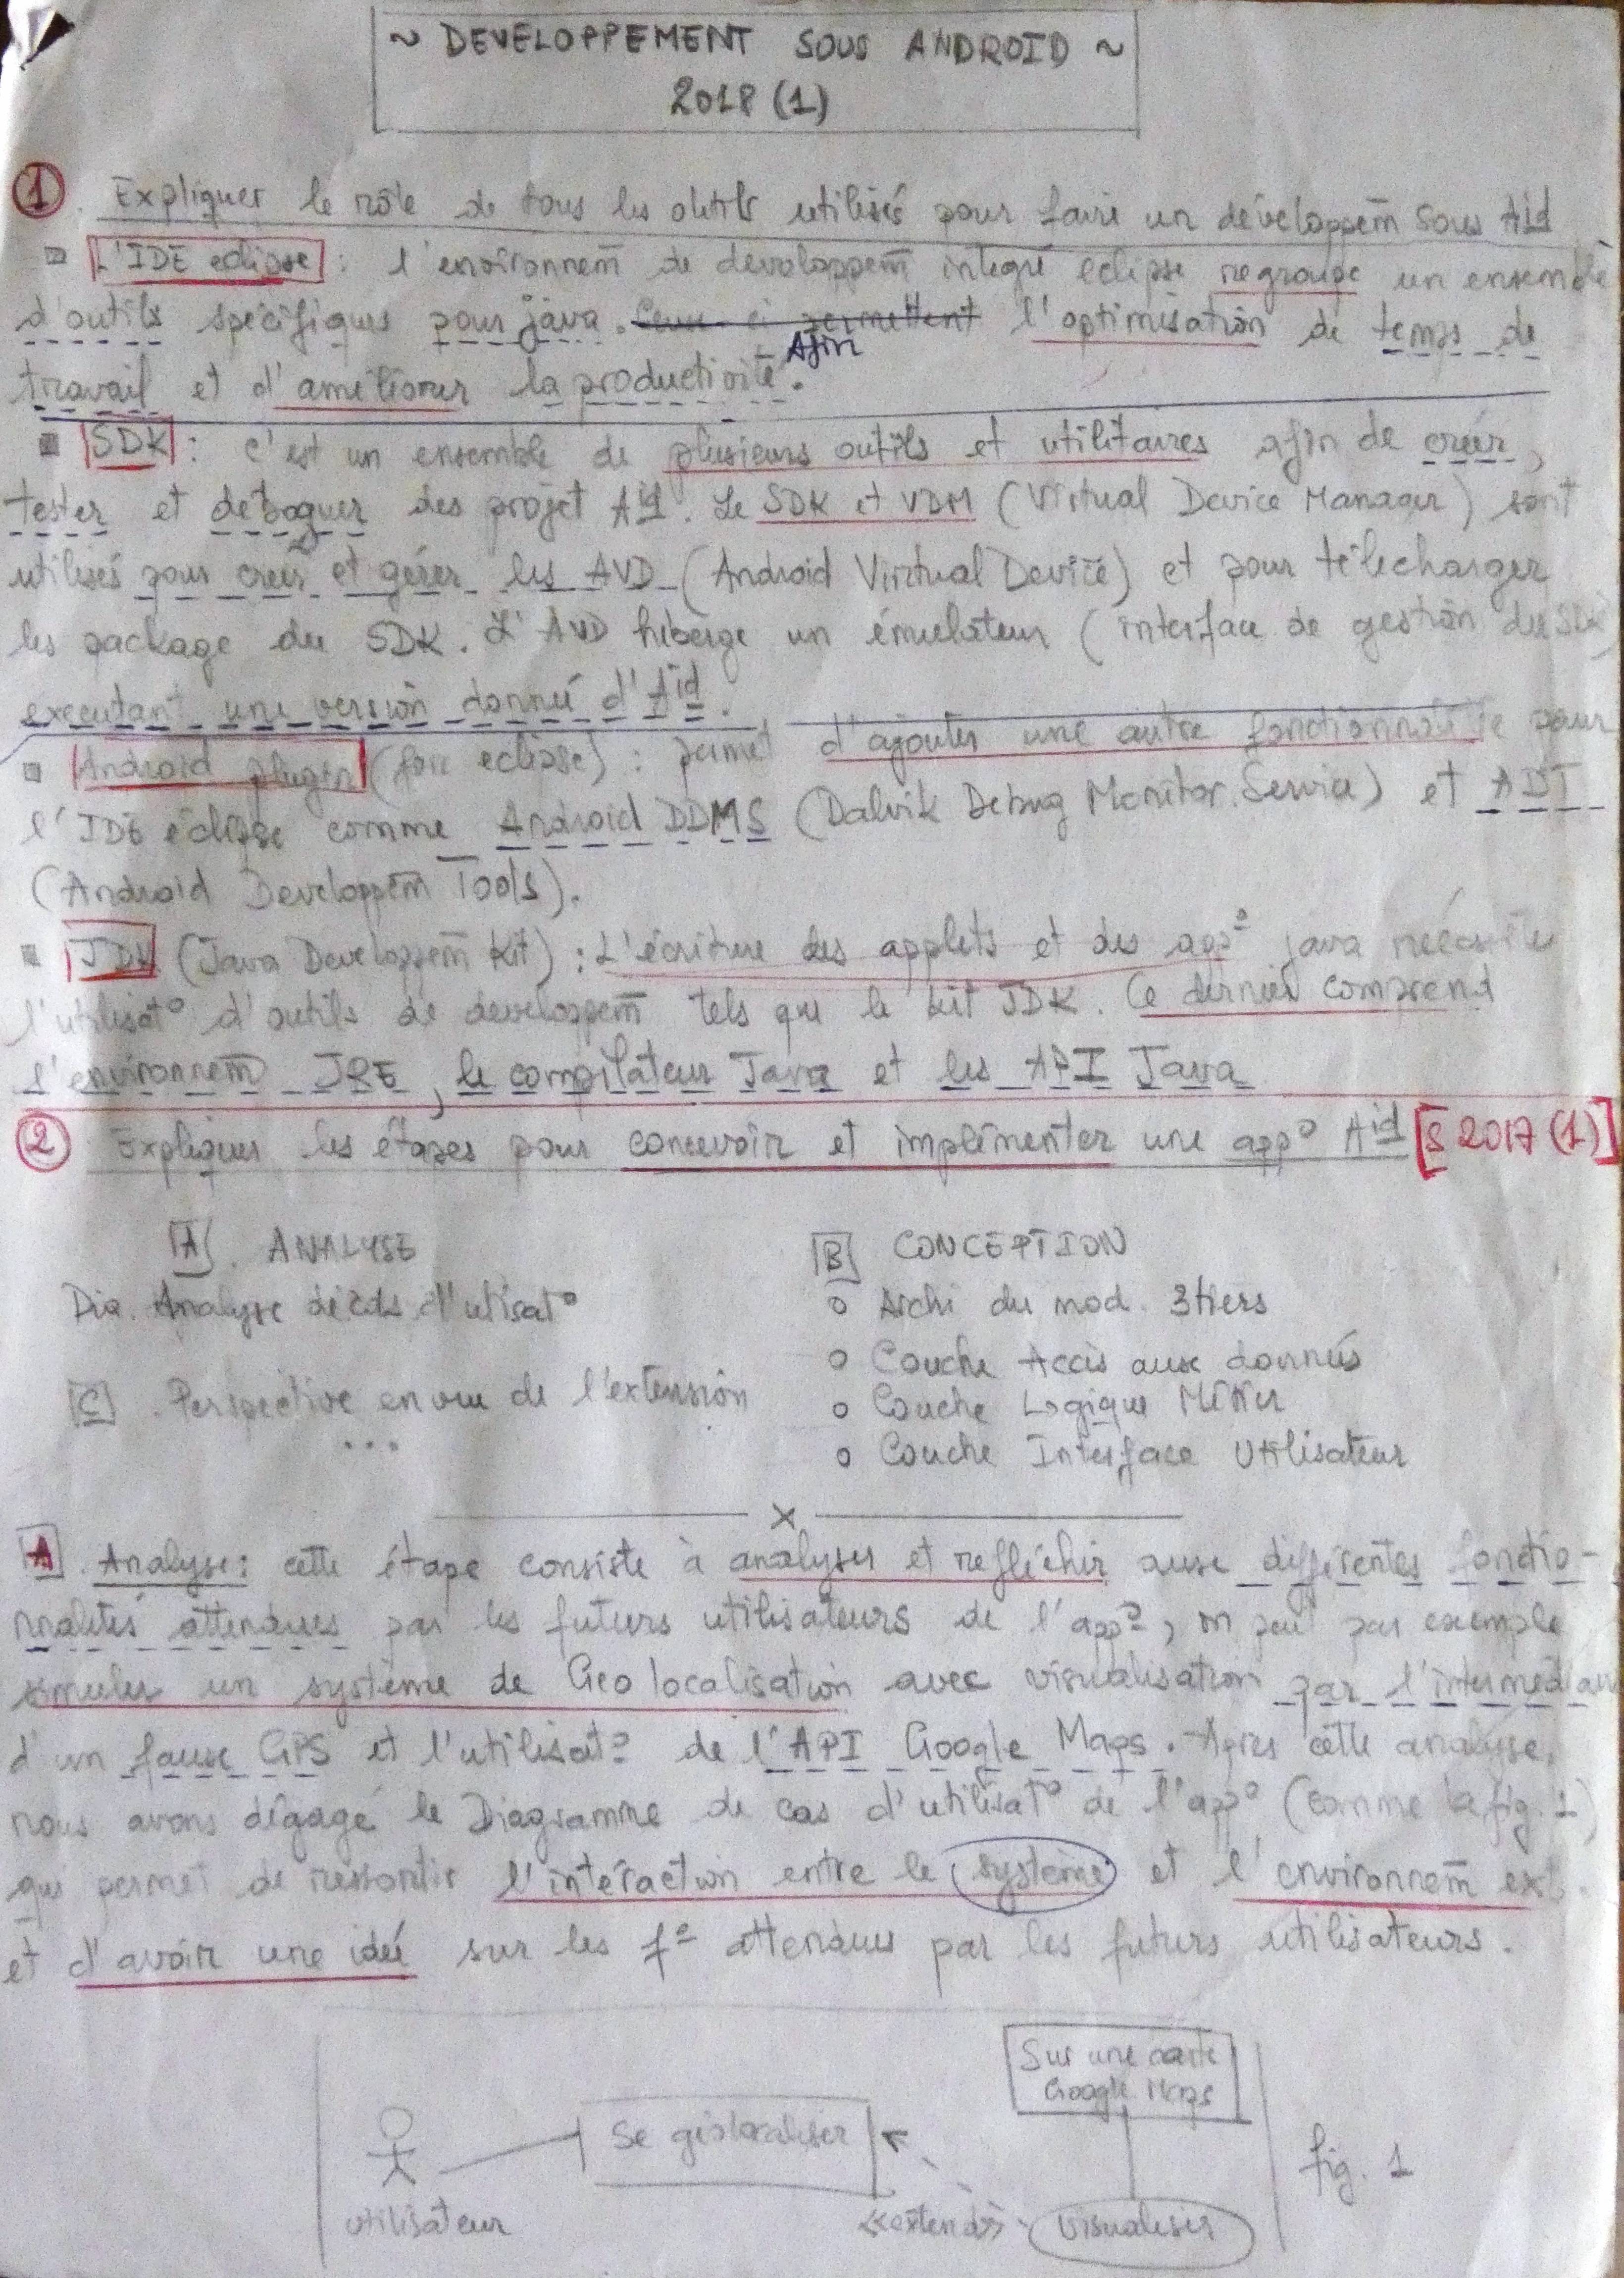 ~ DEVELOPPEMENT SOUS ANDROID ~
2018 (1)
① Expliquer le rôle de tous les outils utilisés pour faire un développem̄ sous Aid
L'IDE eclipse : l'environnem̄ de developpem̄ integré eclipse regroupe un ensemble
d'outils spécifiques pour java. Ceux-ci permettent l'optimisation de temps de
Afin
travail et d'améliorer la productivité.
SDK : c'est un ensemble de plusieurs outils et utilitaires afin de créer,
tester et deboguer des projet Aid. Le SDK et VDM (Virtual Device Manager) sont
utilisés pour créer et gérer les AVD (Android Virtual Device) et pour télécharger
les package du SDK. L'AVD héberge un émulateur (interface de gestion du SDK)
executant une version donnée d'Aid.
Android plugin (for eclipse) : permet d'ajouter une autre fonctionnalité pour
l'IDE éclipse comme Android DDMS (Dalvik Debug Monitor Service) et ADT
(Android Developpem̄ Tools).
JDK (Java Developpem̄ Kit) : L'écriture des applets et des app° java nécessite
l'utilisat° d'outils de developpem̄ tels que le kit JDK. Ce dernier comprend
l'environnem̄ JRE, le compilateur Java et les API Java
② Expliquer les étapes pour concevoir et implémenter une app° Aid [S 2017 (1)]
A. ANALYSE
Dia. Analyse de cas d'utisat°
B CONCEPTION
o Archi du mod. 3tiers
o Couche Accès aux données
C. Perspective en vue de l'extension
...
o Couche Logique Métier
o Couche Interface Utilisateur
x
A. Analyse: cette étape consiste à analyser et reflêchir aux différentes fonctio-
nnalités attendues par les futurs utilisateurs de l'app°, on peut par exemple
simuler un système de Geolocalisation avec visualisation par l'intermédiaire
d'un faux GPS et l'utilisat° de l'API Google Maps. Après cette analyse,
nous avons dégagé le Diagramme de cas d'utilisat° de l'app° (comme la fig. 1)
qui permet de ressortir l'intéraction entre le système et l'environnem̄ ext.
et d'avoir une idée sur les f° attendues par les futurs utilisateurs.
Sur une carte
Google Maps
Se géolocaliser
fig. 1
utilisateur
<<extend>>
Visualiser